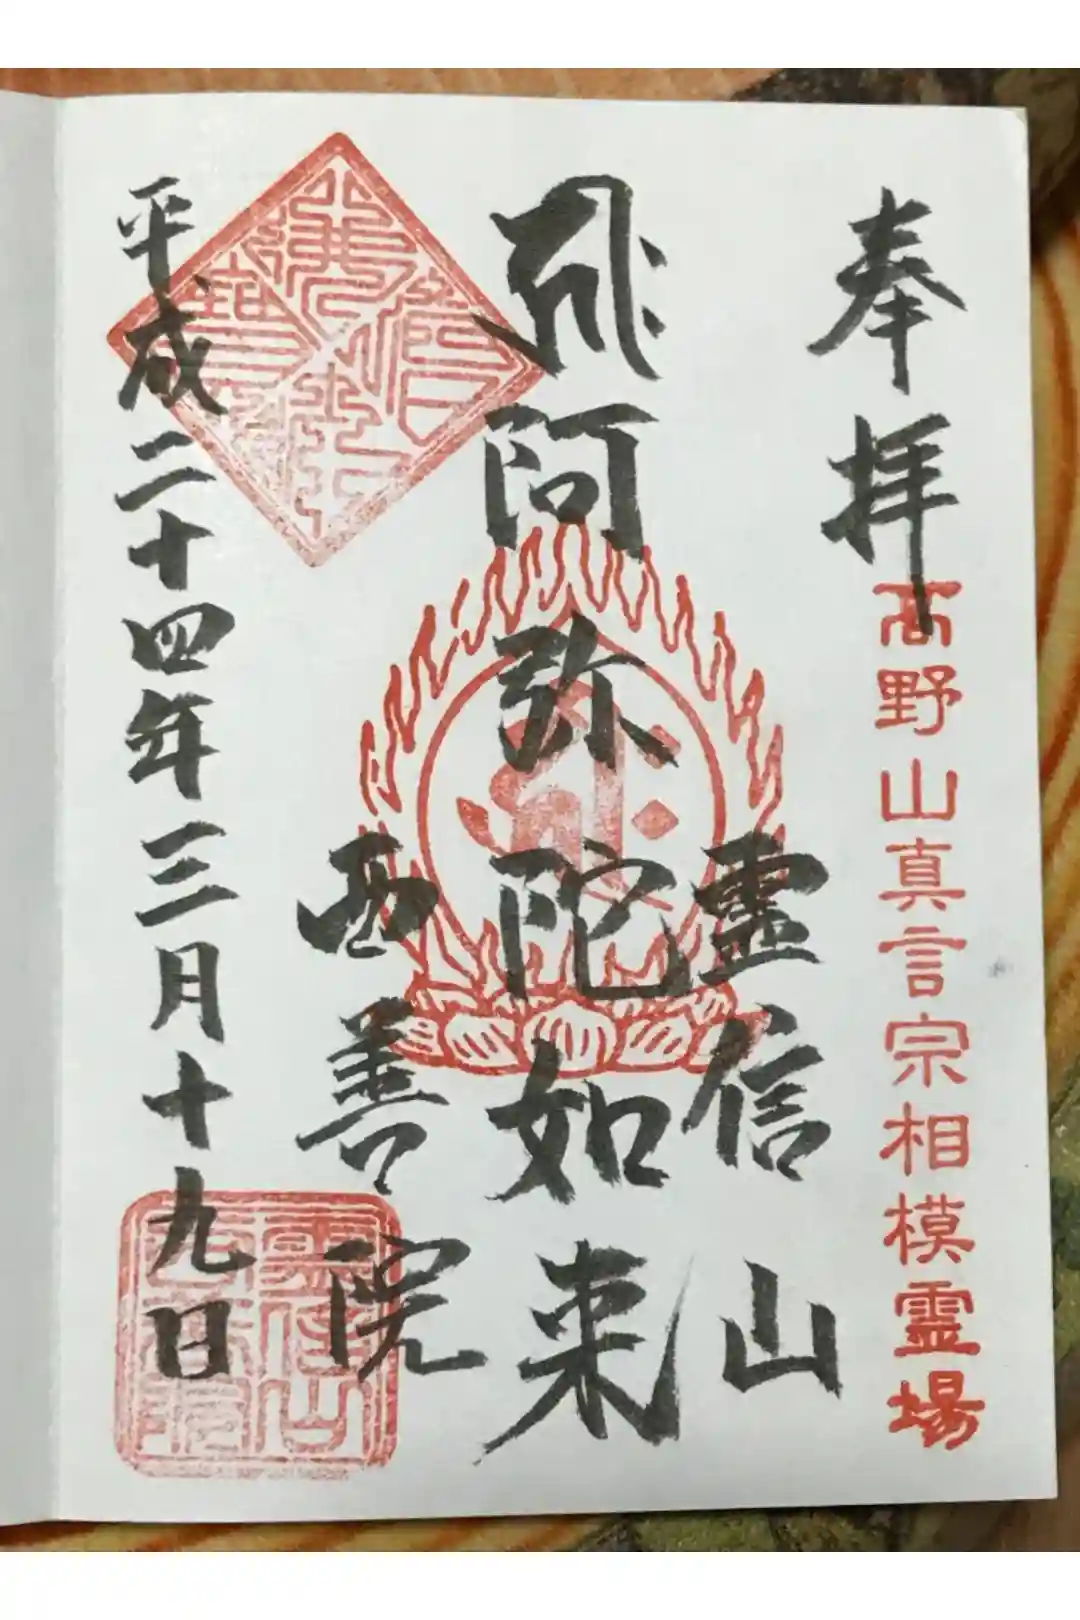 奉拝
高野山真言宗相模霊場
霊信山
阿弥陀如来
西善院
平成二十四年三月十九日